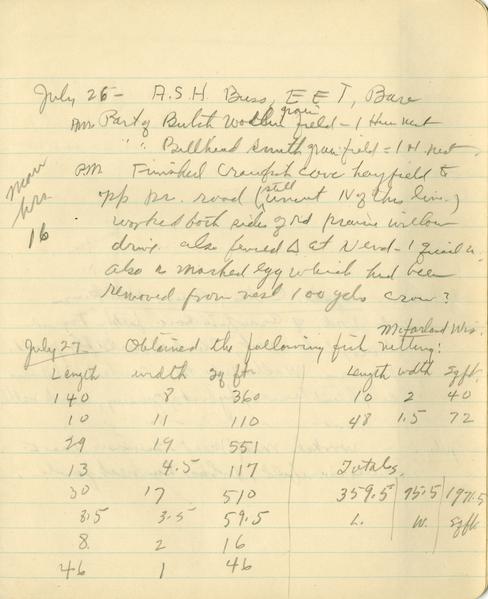 July 26- A.S.H. Buss, E E T, Bare
AM Part of Butch grain field - 1 Hun nest
" " Bullhead Smith grain field = 1 H. nest
PM Finished Crawfish cove hayfield to
Man
hrs
16
pp pr. road (still uncut N of this line.)
worked both sides of Rd prairie willow
drive also fenced Δ at N end - 1 quail n.
also a marked egg which had been
removed from nest 100 yds crow?
McFarland Wis.
July 27 Obtained the following fish netting:
Length width sq ft.
140 8 360
10 11 110
29 19 551
13 4.5 117
30 17 510
8.5 3.5 59.5
8. 2 16
46 1 46
Length width sq ft.
10 2 40
48 1.5 72
Totals,
359.5 95.5 1971.5
L. W. sq ft